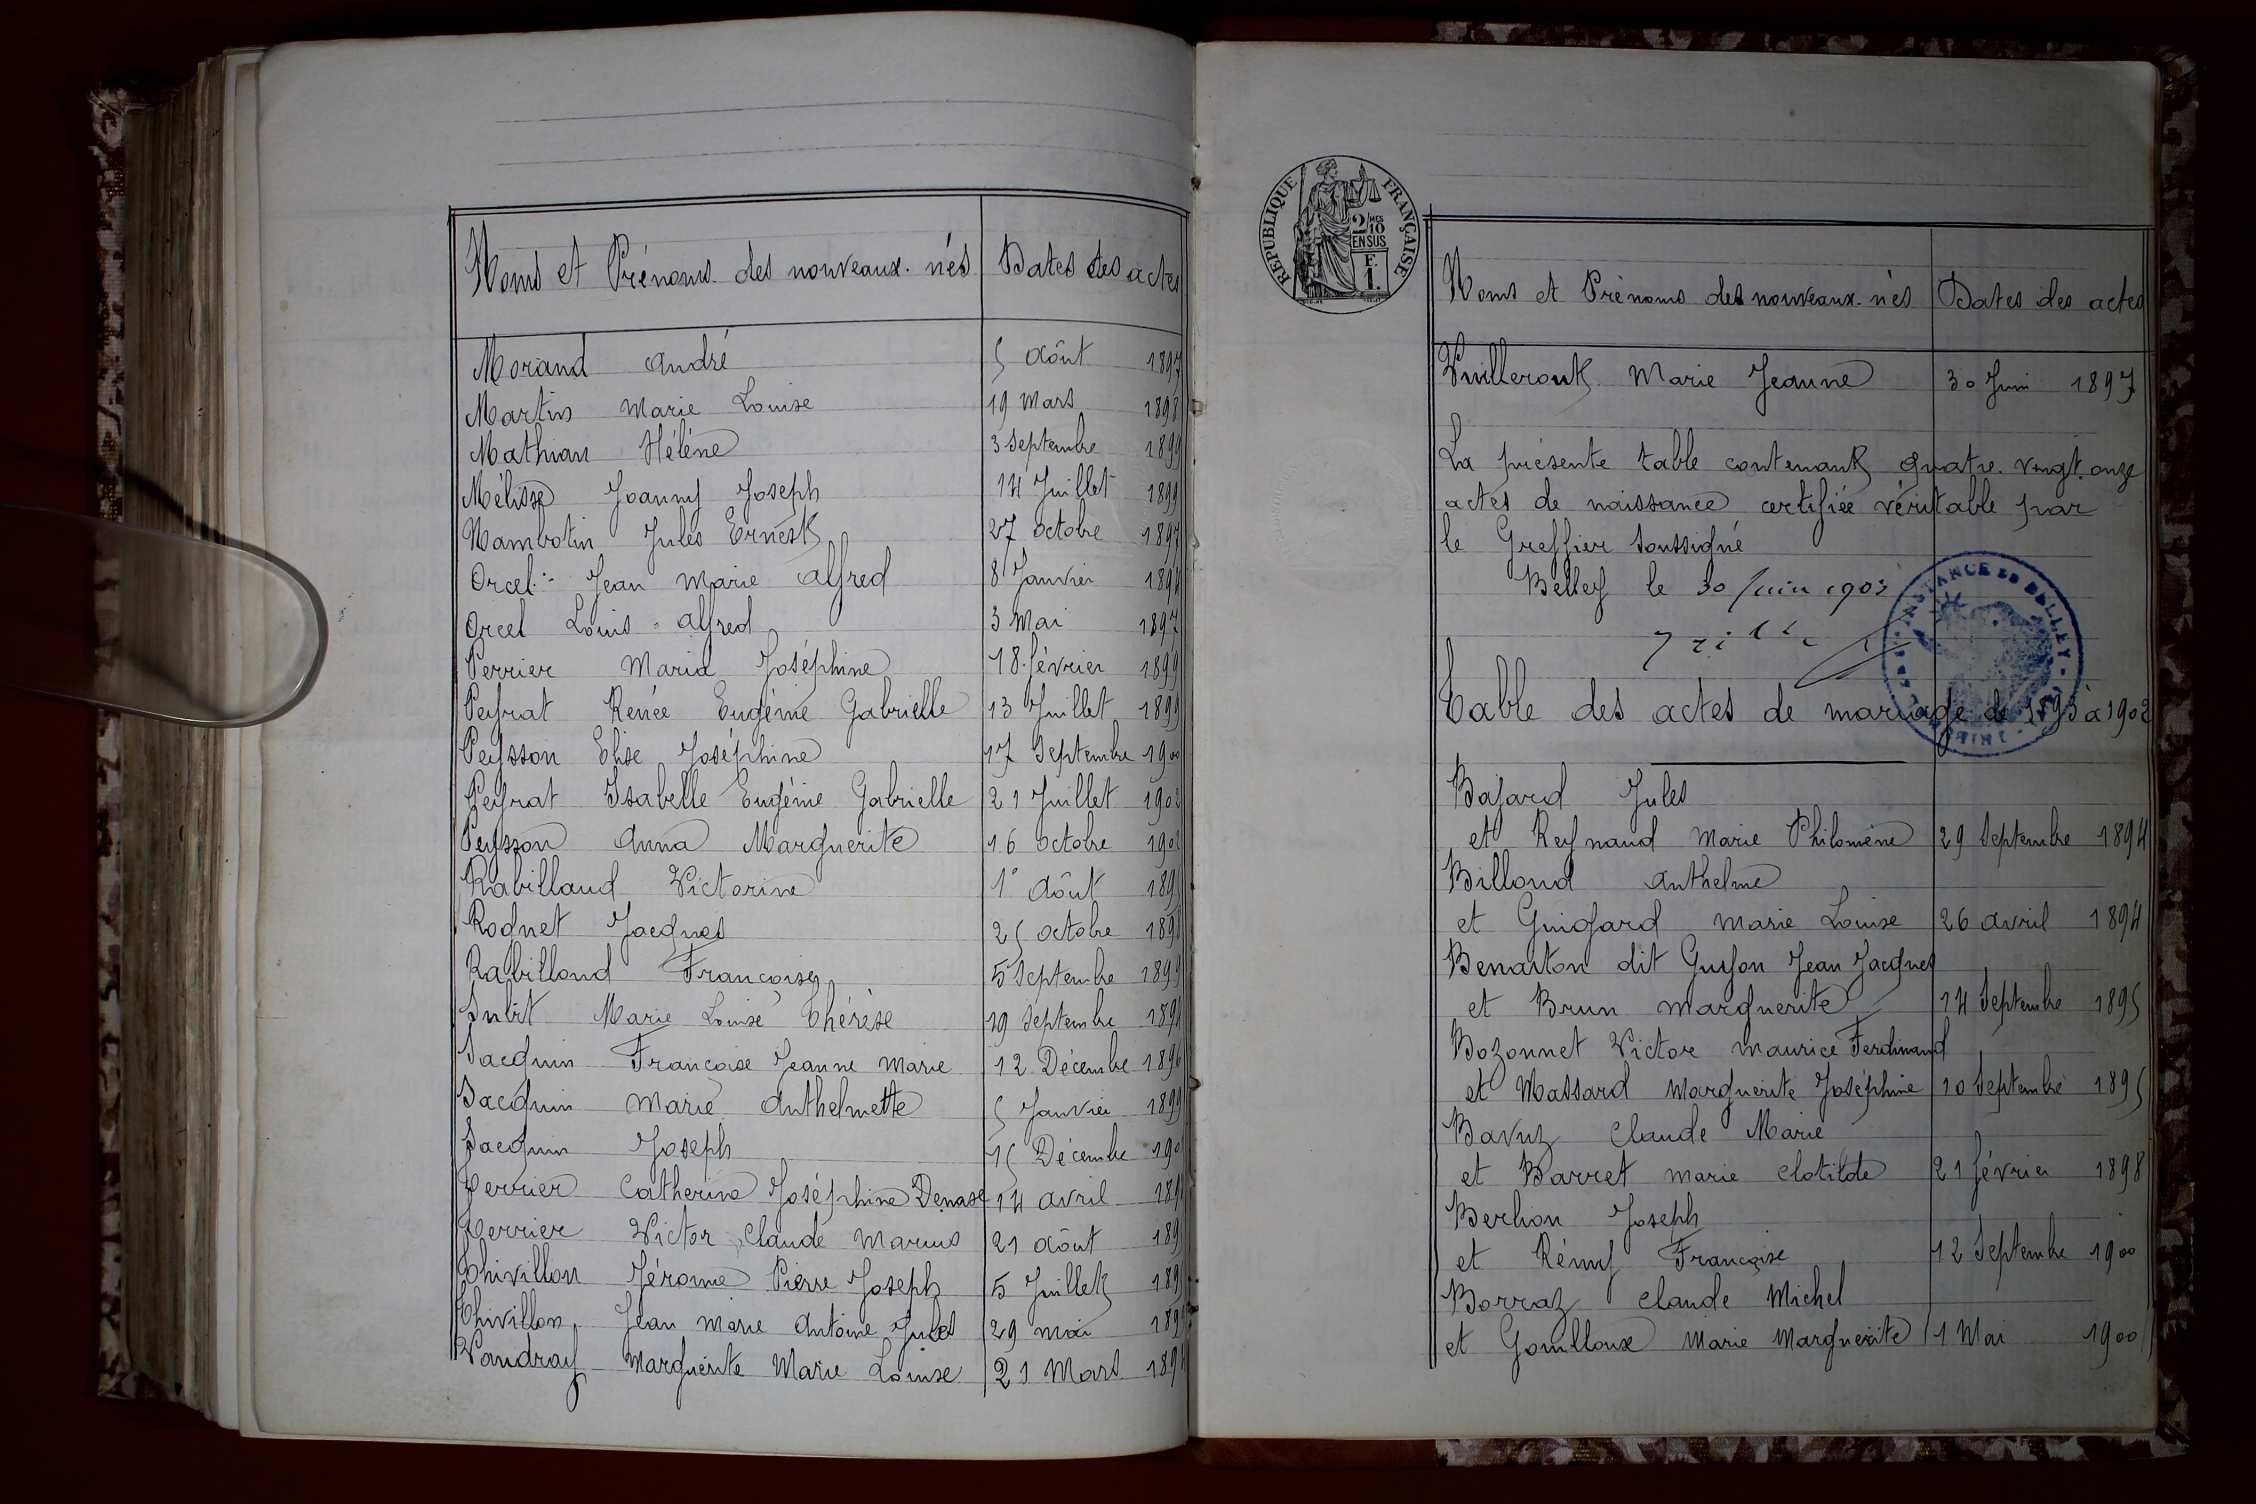 Noms et Prénoms des nouveaux-nés Dates des actes
Morand André 5 Août 1897
Martin Marie Louise 19 Mars 1898
Mathian Hélène 3 Septembre 1899
Mélisse Joanny Joseph 14 Juillet 1899
Nambotin Jules Ernest 27 octobre 1897
Orcel Jean Marie Alfred 8 Janvier 1894
Orcel Louis Alfred 3 Mai 1897
Perrier Maria Joséphine 18 février 1899
Peyrat Renée Eugénie Gabrielle 13 Juillet 1899
Peysson Elise Joséphine 17 Septembre 1900
Peyrat Isabelle Eugénie Gabrielle 21 Juillet
Peysson Anna Marguerite 16 octobre 1902
Rabilloud Victorine 1° Août
Roquet Jacques 25 octobre 1898
Rabilloud Françoise 5 Septembre 1899
Subit Marie Louise Thérèse 19 Septembre 1894
Jacquin Françoise Jeanne Marie 12 Décembre 1896
Jacquin Marie Anthelmette 5 Janvier 1899
Jacquin Joseph 15 Décembre
Terrier Catherine Joséphine 14 avril
Terrier Victor Claude Marius 21 Août
Thivillon Jérome Pierre Joseph 5 Juillet
Thivillon Jean Marie Antoine Jules 29 mai
Vaudray Marguerite Marie Louise 21 Mars
RÉPUBLIQUE FRANÇAISE
2/10 MES
EN SUS
F.
1.
Noms et Prénoms des nouveaux-nés Dates des actes
Vuillerout Marie Jeanne 30 Juin 1897
La présente table contenant quatre-vingt onze
actes de naissance certifiée véritable par
le Greffier soussigné
Belley le 30 Juin 1903
Table des actes de mariage de 1893 à 1902
Bajard Jules
et Reynaud Marie Philomène 29 Septembre 1894
Billoud Anthelme
et Guigard Marie Louise 26 avril 1894
Benaiton dit Guyon Jean Jacques
et Brun Marguerite 14 Septembre 1895
Bozonnet Victor Maurice Ferdinand
et Massard Marguerite Joséphine 10 Septembre 1895
Bavuz Claude Marie
et Barret Marie Clotilde 21 février 1898
Berlion Joseph
et Rémy Françoise 12 Septembre 1900
Borraz Claude Michel
et Gouilloux Marie Marguerite 1 Mai 1900